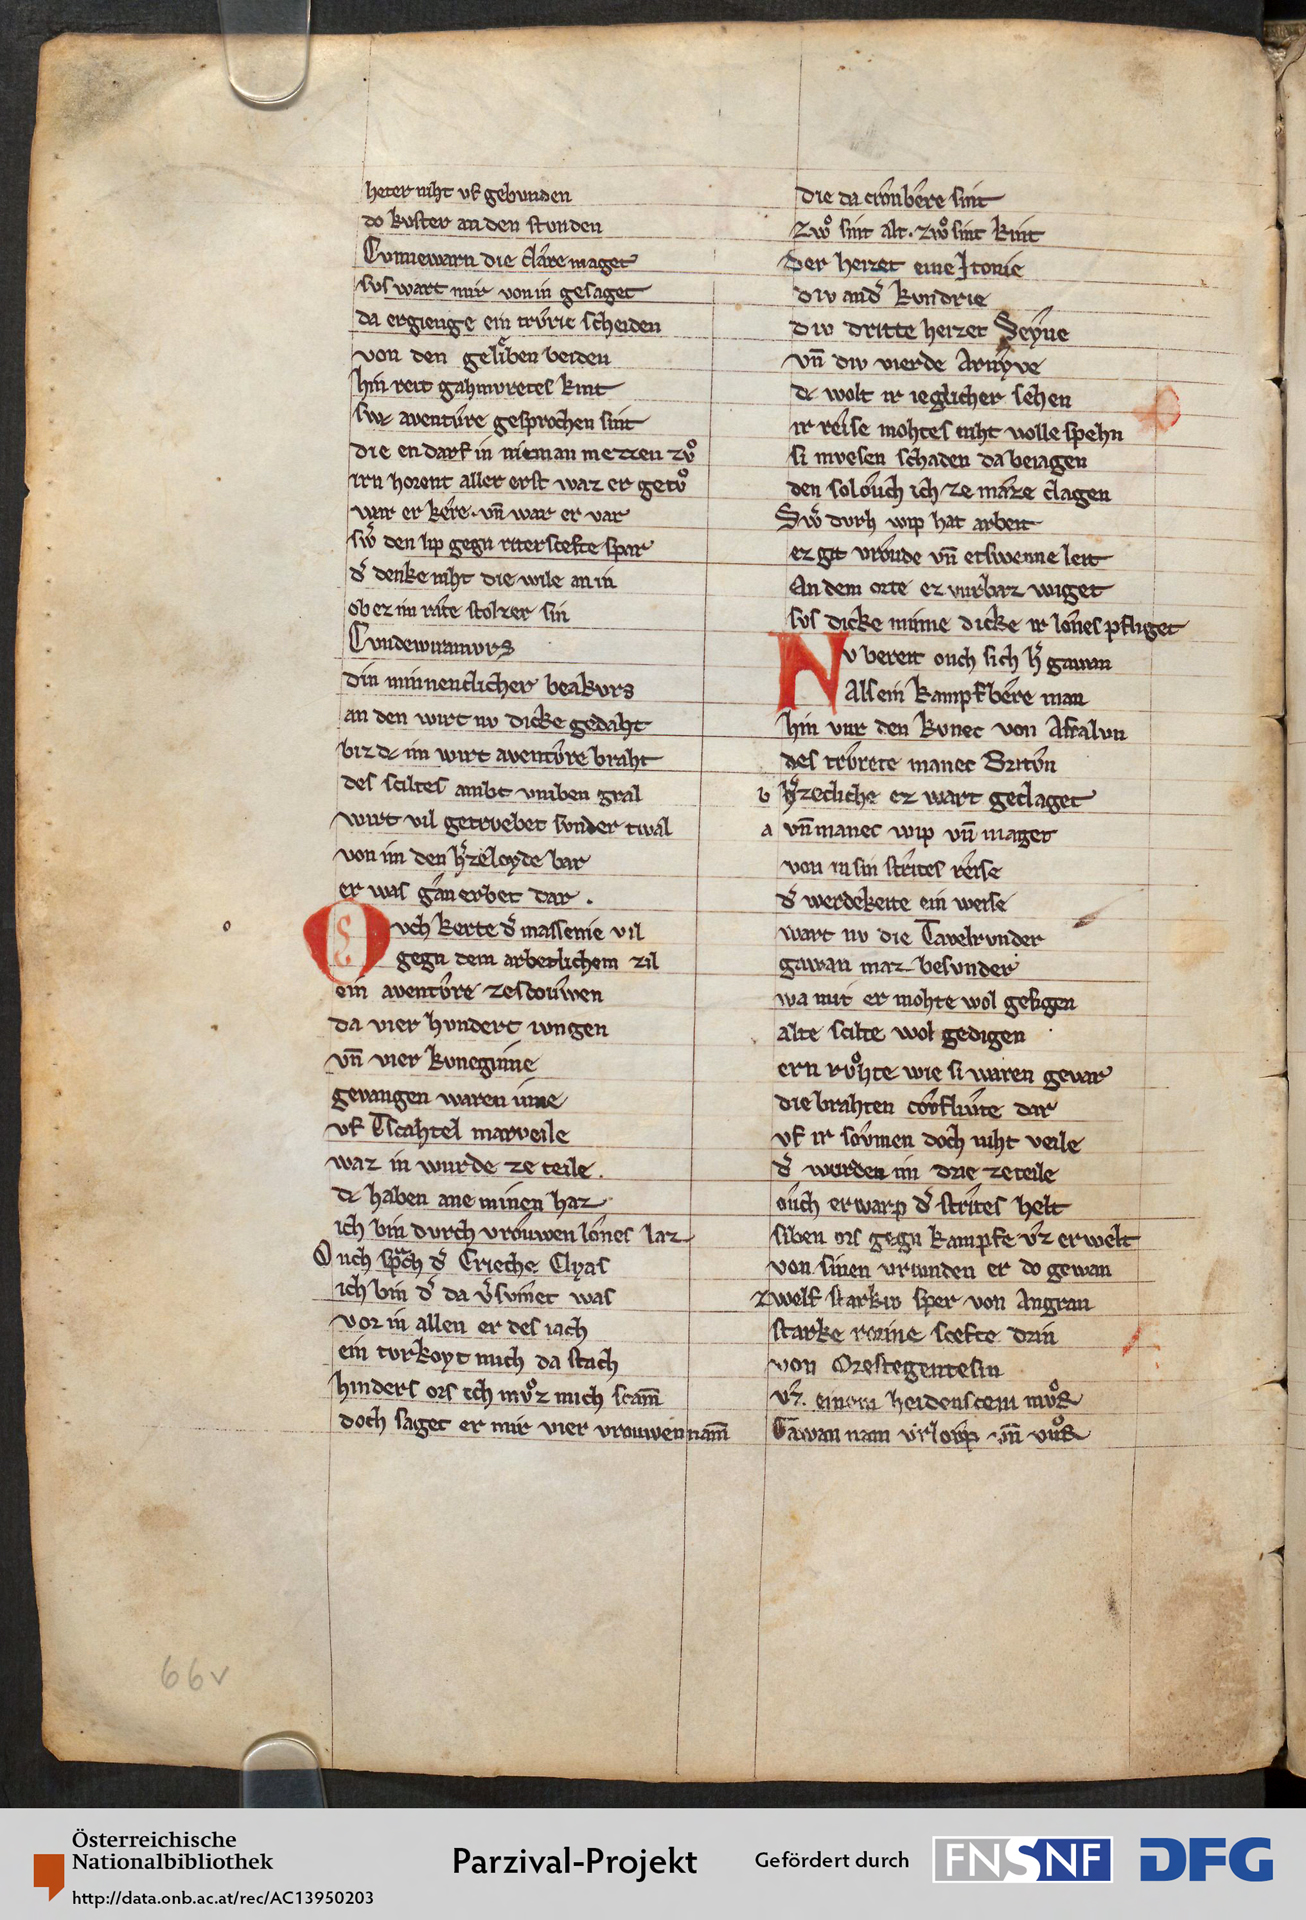 heter niht vf gebvnden
do kvster an den stvnden
Cvnnewarn die clare maget
svs wart mir von in gesaget
da ergienge ein trvric scheiden
von den gelieben beiden
hin reit gahmvretes kint
swc aventvre gesprochen sint
die en darf in nieman mezzen zvͦ
irn horent aller erst waz er getvͦ
war er kere. vn̄ war er var
sw̾ den lip gegn riterscefte spar
d̾ denke niht die wile an in
ob ez im rate stolzer sin
Cvndewiramvrs
din minneclicher beakvrs
an den wirt nv dicke gedaht
biz dc im wirt aventvre braht
des sciltes ambt vmben gral
wirt vil getrvebet svnder twal
von im den h̾zeloyde bar
er was ganerbet dar .
Ovch kerte d̾ massenie vil
gegn dem arbetlichem zil
ein aventvre zescouwen
da vier hvndert ivngen
vn̄ vier kvneginne
gevangen waren inne
vf Tscahtel marveile
waz in wurde ze teile .
dc haben ane minen haz
ich bin dvrch vrouwen lones laz
Ouch sprach d̾ Crieche Clyas
ich bin d̾ da v̾svmet was
vor in allen er des iach
ein tvrkoyt mich da stach
hinders ors ich mvͦz mich scam̄
doch saget er mir vier vrouwen nam̄
die da cronbere sint
zwoͦ sint alt. zwoͦ sint kint
der heizet eine Itonie
div and̾ kvndrie
div dritte heizet Seyne
vn̄ div vierde Arnyve
dc wolt ir ieglicher sehen
ir reise mohtes niht volle spehn
si mvesen schaden da beiagen
den sol ouch ich ze maze clagen
Sw̾ dvrh wip hat arbeit
ez git vroude vn̄ etswenne leit
An dem orte ez vurbaz wiget
svs dicke minne dicke ir lones pfliget
Nv bereit ouch sich h̾ gawan
Als ein kampfbere man
hin vur den kvnec von Afcalvn
des trvrete manec Britvn
b h̾zecliche ez wart geclaget
a vn̄ manec wip vn̄ maget
von in sin strites reise
d̾ werdekeite ein weise
wart nv die Tavelrvnder
gawan maz besvnder
wa mit er mohte wol gesigen
alte scilte wol gedigen
ern rvͦhte wie si waren gevar
die brahten covflvͤte dar
vf ir sovmen doch niht veile
d̾ wurden im drie ze teile
ouch erwarp d̾ strites helt
siben ors gegn kampfe v̾z erwelt
von sinen vriunden er do gewan
zwelf starkiv sper von Angran
starke rorine scefte drin
von Orestegentesin
v̾z. einem heidenscem mvͦs
Gawan nam vrlovp vn̄ vuͦr
66v
Österreichische
Nationalbibliothek
http://data.onb.ac.at/rec/AC13950203
Parzival-Projekt
Gefördert durch
FNSNF
DFG